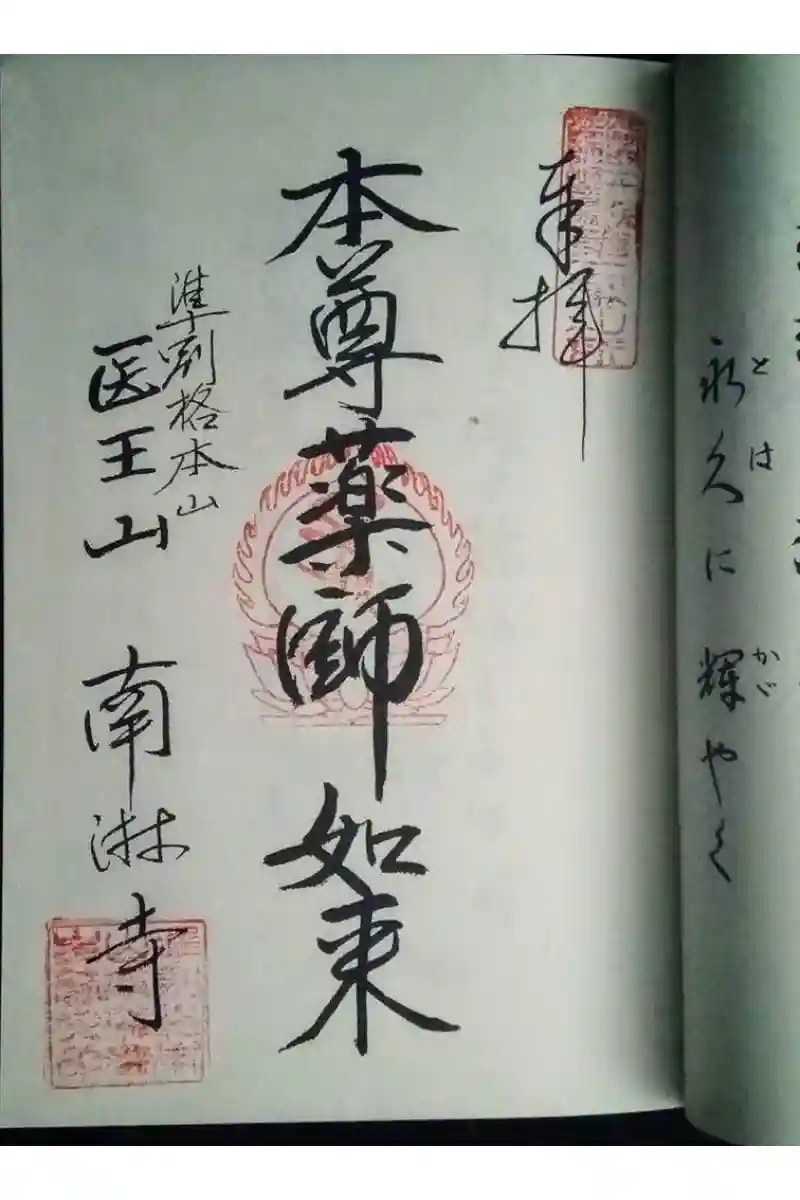 永久に輝やく
とは
かが
奉拝
本尊薬師如来
準別格本山
医王山 南淋寺